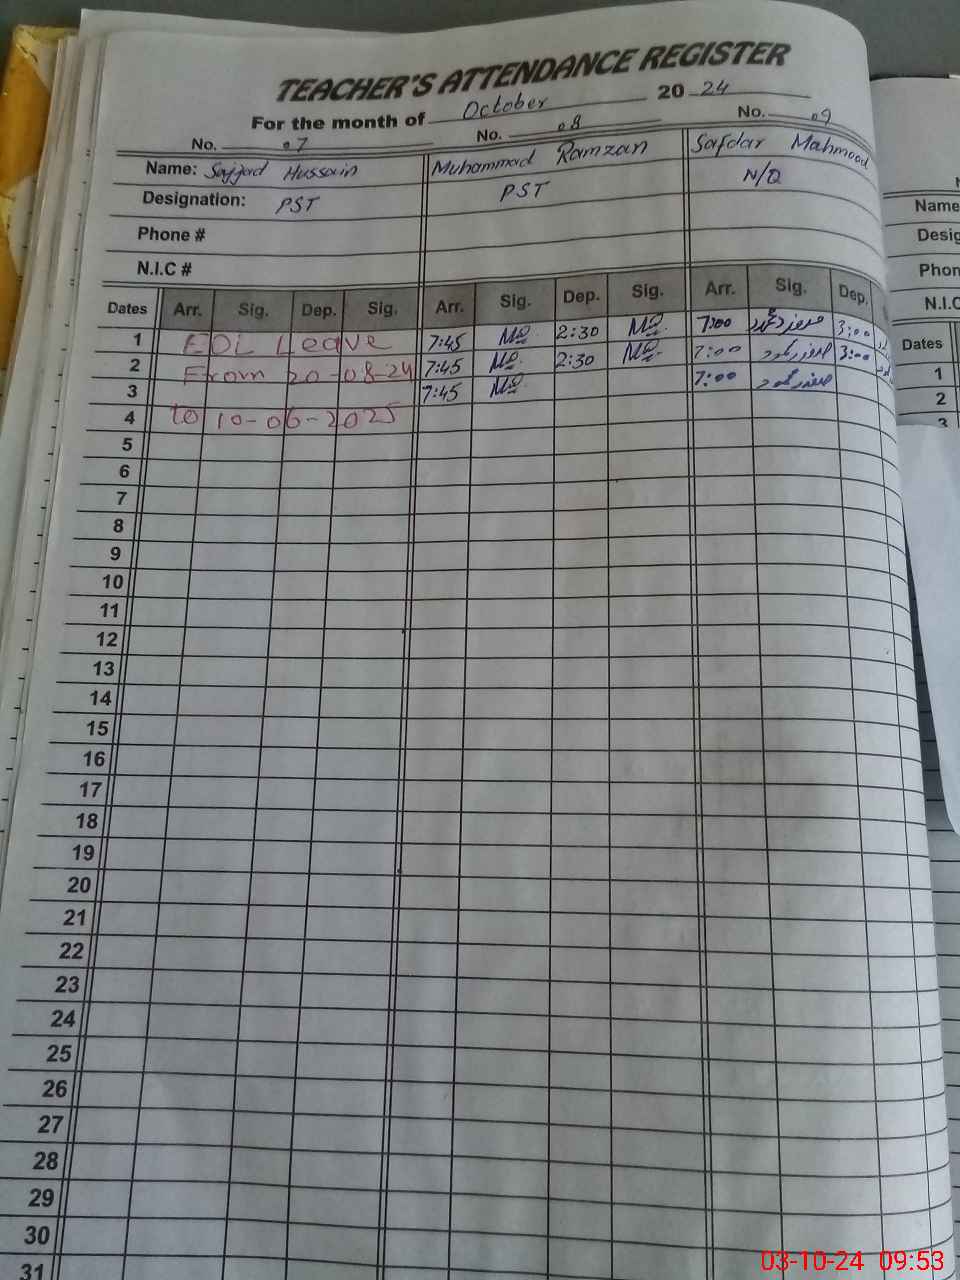 TEACHER'S ATTENDANCE REGISTER
For the month of October 2024
No. 07 No. 08 No. 09
Name: Sajjad Hussain Muhammad Ramzan Safdar Mahmood
Designation: PST PST N/Q
Phone #
N.I.C #
Dates Arr. Sig. Dep. Sig. Arr. Sig. Dep. Sig. Arr. Sig. Dep.
1 EOL Leave 7:45 2:30 7:00 صفدر محمود 3:00
2 From 20-08-24 7:45 2:30 7:00 صفدر محمود 3:00
3 7:45 7:00 صفدر محمود
4 to 10-06-2025
5
6
7
8
9
10
11
12
13
14
15
16
17
18
19
20
21
22
23
24
25
26
27
28
29
30
31
Name
Desig
Phon
N.I.C
Dates
1
2
3
03-10-24 09:53